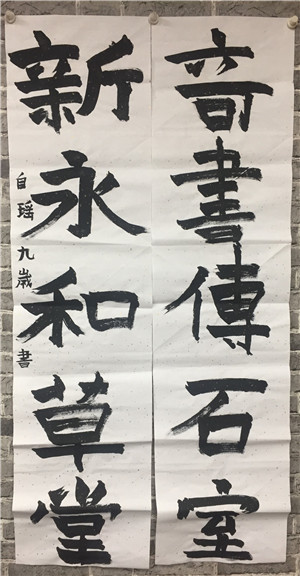 奇書傳石室
新永和草堂
自瑶九歲書